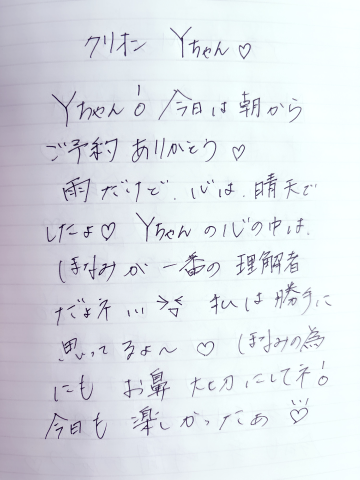 クリオン Yちゃん♡
Yちゃん！今日は朝から
ご予約ありがとう♡
雨だけど、心は、晴天で
したよ♡ Yちゃんの心の中は、
ほなみが一番の理解者
だよネ!!! 私は勝手に
思ってるよ〜♡ ほなみの為
にもお鼻大切にしてネ！
今日も楽しかったぁ♡